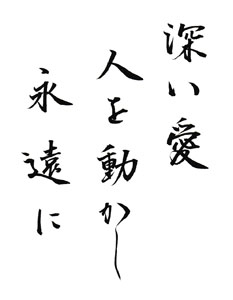 深い愛
人を動かし
永遠に